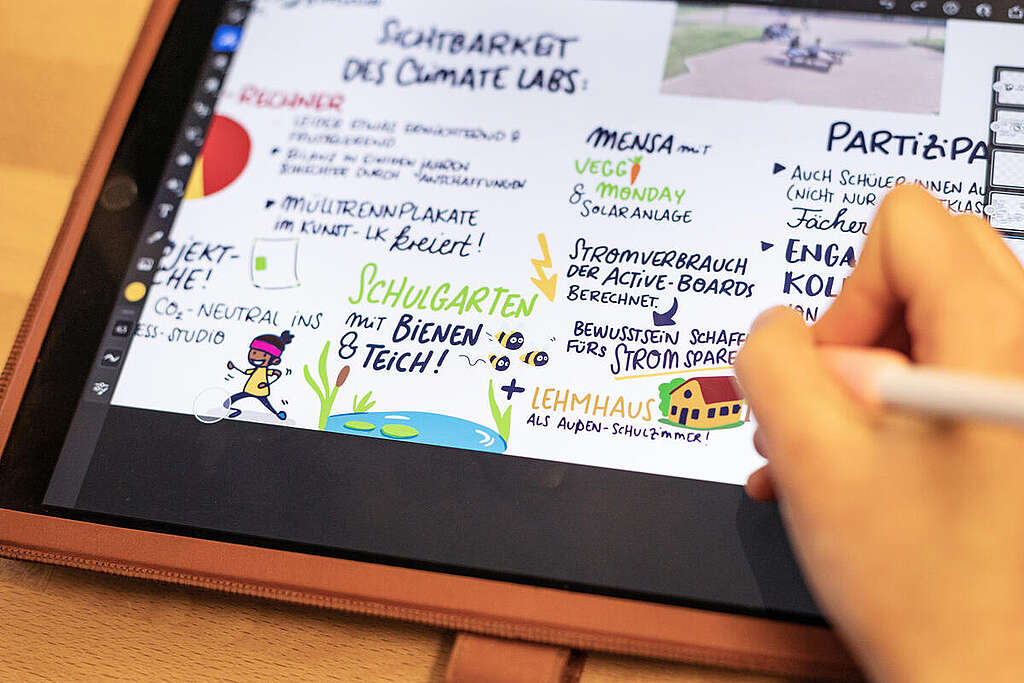 SICHTBARKEIT
DES CLIMATE LABS:
-RECHNER
LEIDER ETWAS ERNÜCHTERND &
FRUSTRIEREND
BILANZ IN EINIGEN JAHREN
SCHLECHTER DURCH ANSCHAFFUNGEN
MÜLLTRENNPLAKATE
IM KUNST-LK kreiert!
OJEKT-
CHE!
CO₂-NEUTRAL INS
ESS-STUDIO
SCHULGARTEN
MIT BIENEN
& TEICH!
MENSA MIT
VEGGI
MONDAY
& SOLARANLAGE
STROMVERBRAUCH
DER ACTIVE-BOARDS
BERECHNET.
BEWUSSTSEIN SCHAFFE
FÜRS STROM SPARE
+ LEHMHAUS
ALS AUßEN-SCHULZIMMER!
PARTIZIPA
AUCH SCHÜLER:INNEN AU
(NICHT NUR
Fächer
ENGA
KOL